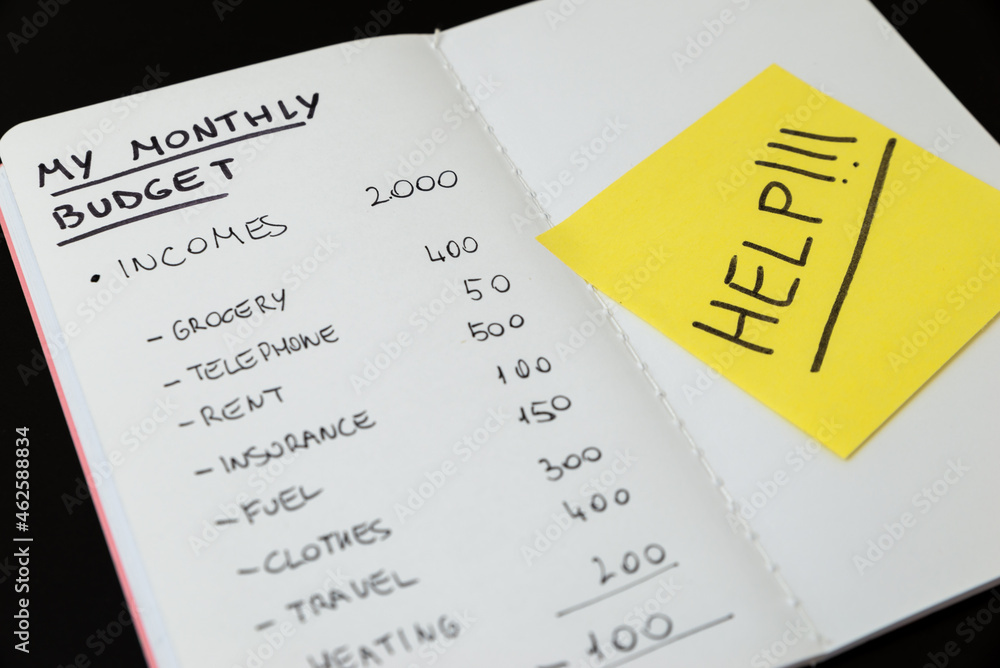 MY MONTHLY
BUDGET
• INCOMES 2.000
- GROCERY 400
- TELEPHONE 50
- RENT 500
- INSURANCE 100
- FUEL 150
- CLOTHES 300
- TRAVEL 400
HEATING 200
-100
HELP!!!
Adobe Stock | #462588834